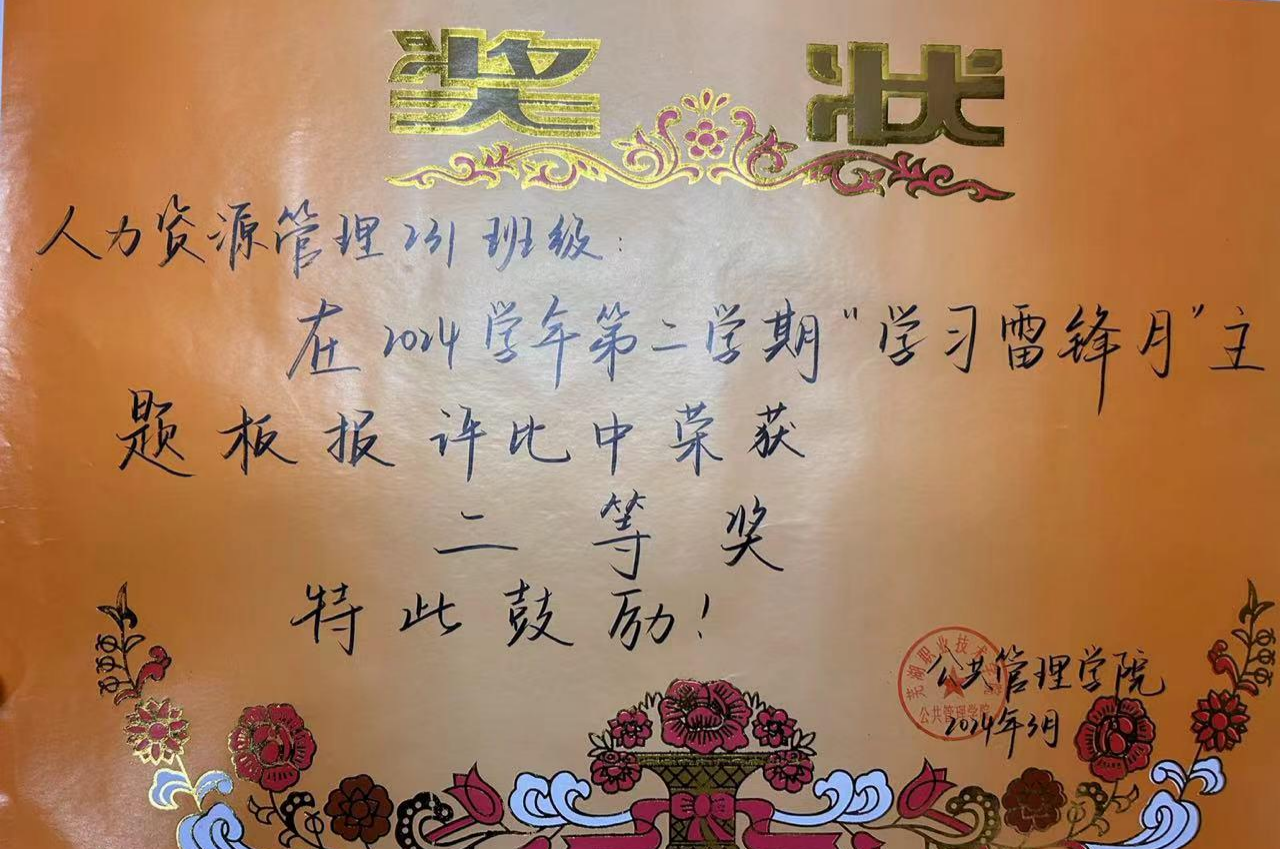 奖状
人力资源管理231班级:
在2024学年第二学期“学习雷锋月”主
题板报评比中荣获
二等奖
特此鼓励!
公共管理学院
2024年3月
芜湖职业技术学院
公共管理学院